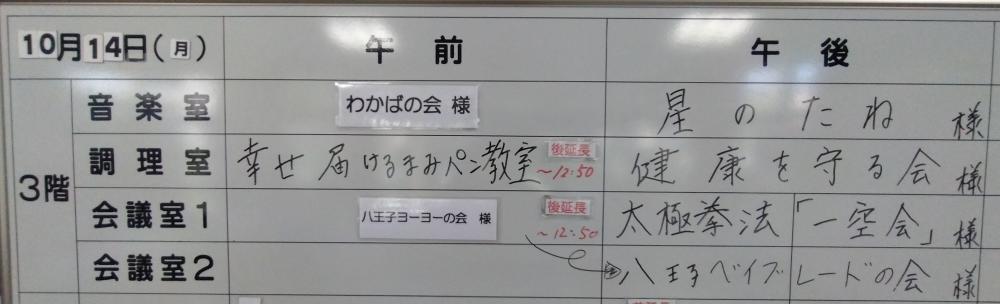 10月14日(月) 午前 午後
3階
音楽室 わかばの会 様 星のたね 様
調理室 幸せ届けるまみパン教室 後延長 ～12:50 健康を守る会 様
会議室1 八王子ヨーヨーの会 様 後延長 ～12:50 太極拳法「一空会」様
会議室2 八王子ベイブレードの会 様